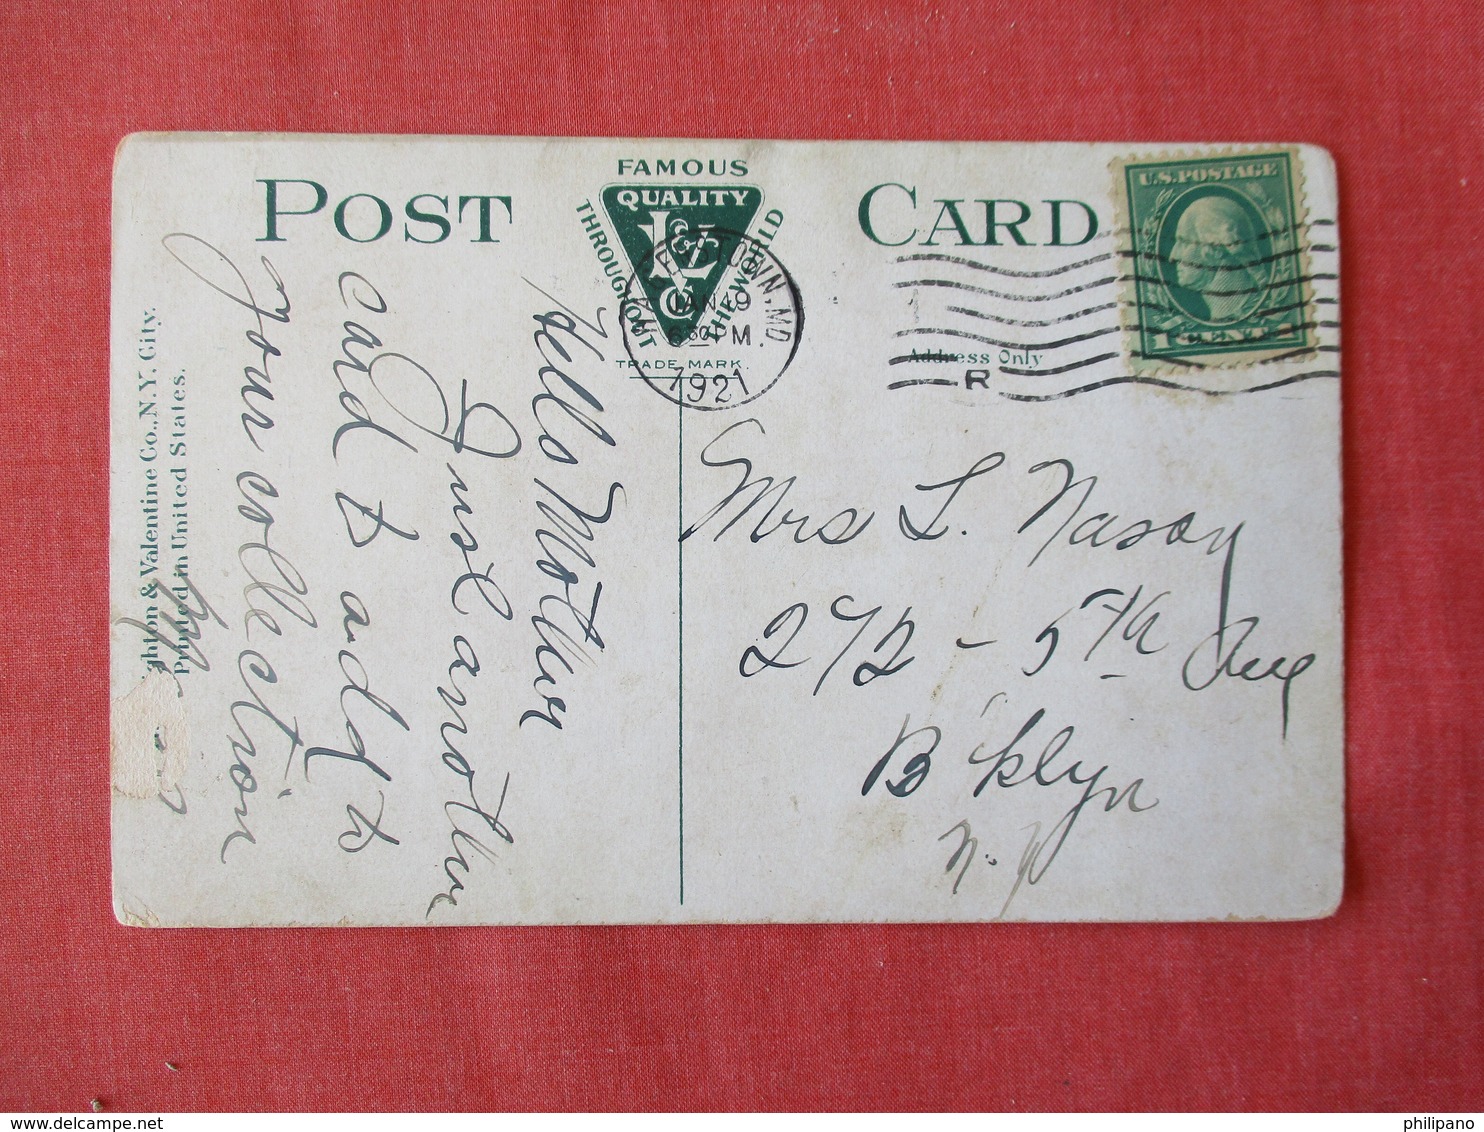 POST CARD
FAMOUS
QUALITY
L&V
Co
THROUGHOUT
THE WORLD
TRADE MARK.
HAGERSTOWN, MD
JAN 19
6 30 PM.
1921
U.S. POSTAGE
1 CENT 1
Address Only
R
Hello Mother
Just another
card to add to
Your collection
Mrs L. Nason
272 - 5th Ave
B'klyn
N. Y
ghton & Valentine Co., N.Y. City.
Printed in United States.
delcampe.net
philipano